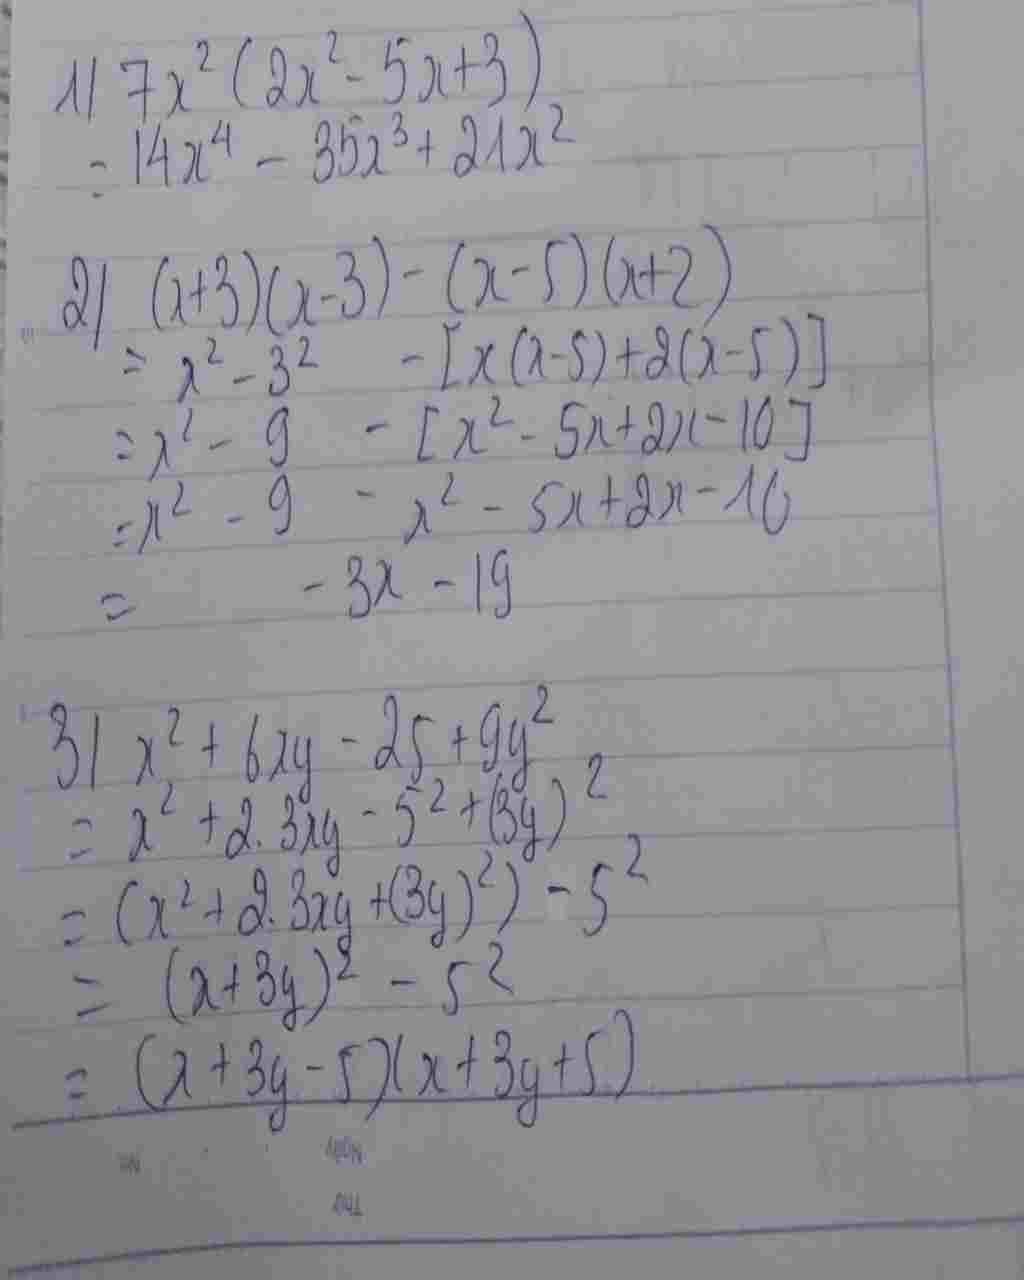 1) 7x² (2x² - 5x + 3)
= 14x⁴ - 35x³ + 21x²
2) (x+3)(x-3) - (x-5)(x+2)
= x² - 3² - [x(x-5) + 2(x-5)]
= x² - 9 - [x² - 5x + 2x - 10]
= x² - 9 - x² - 5x + 2x - 10
= - 3x - 19
3) x² + 6xy - 25 + 9y²
= x² + 2.3xy - 5² + (3y)²
= (x² + 2.3xy + (3y)²) - 5²
= (x + 3y)² - 5²
= (x + 3y - 5)(x + 3y + 5)
Ngày
Thứ